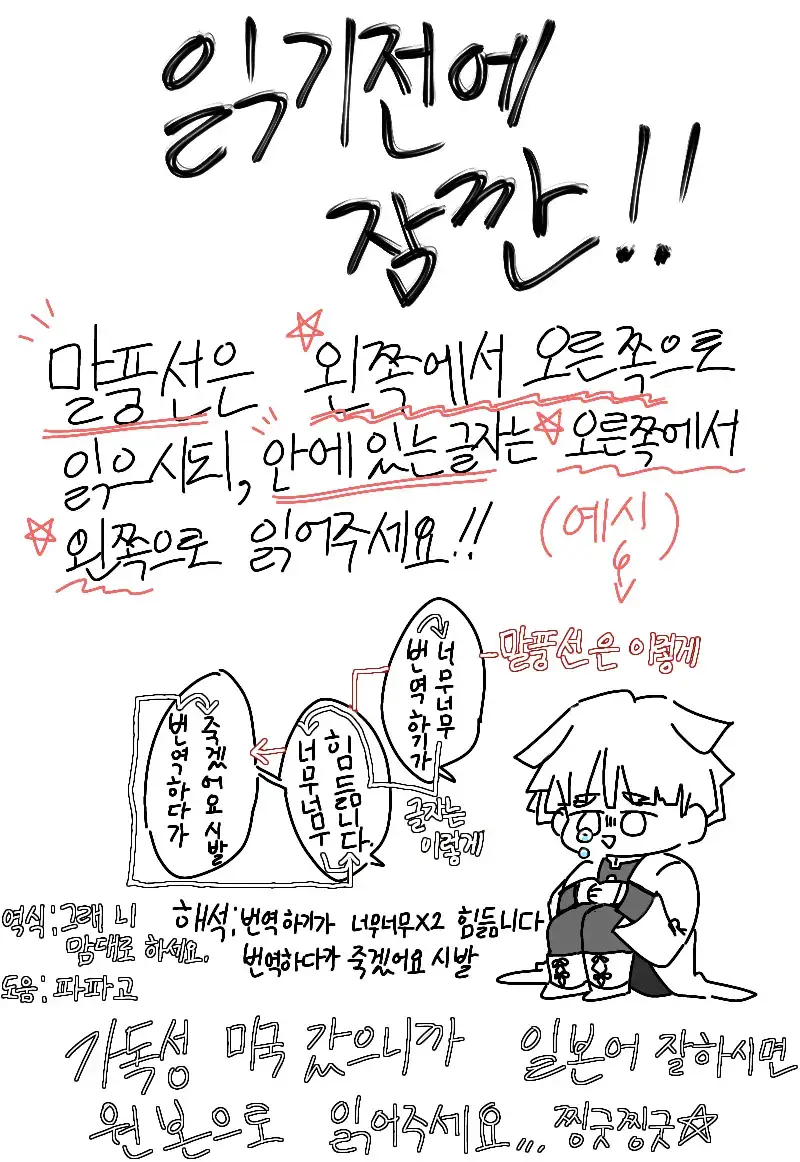 읽기전에
잠깐!!
말풍선은 왼쪽에서 오른쪽으로
읽으시되, 안에 있는 글자는 오른쪽에서
왼쪽으로 읽어주세요!!
(예시)
말풍선은 이렇게
너무너무
번역하기가
힘듭니다
너무넘무
죽겠어요 시발
번역하다가
글자는
이렇게
역식:그래 니
맘대로 하세요.
도움: 파파고
해석:번역하기가 너무너무X2 힘듭니다
번역하다가 죽겠어요 시발
가독성 미국 갔으니까 일본어 잘하시면
원본으로 읽어주세요... 찡긋찡긋☆